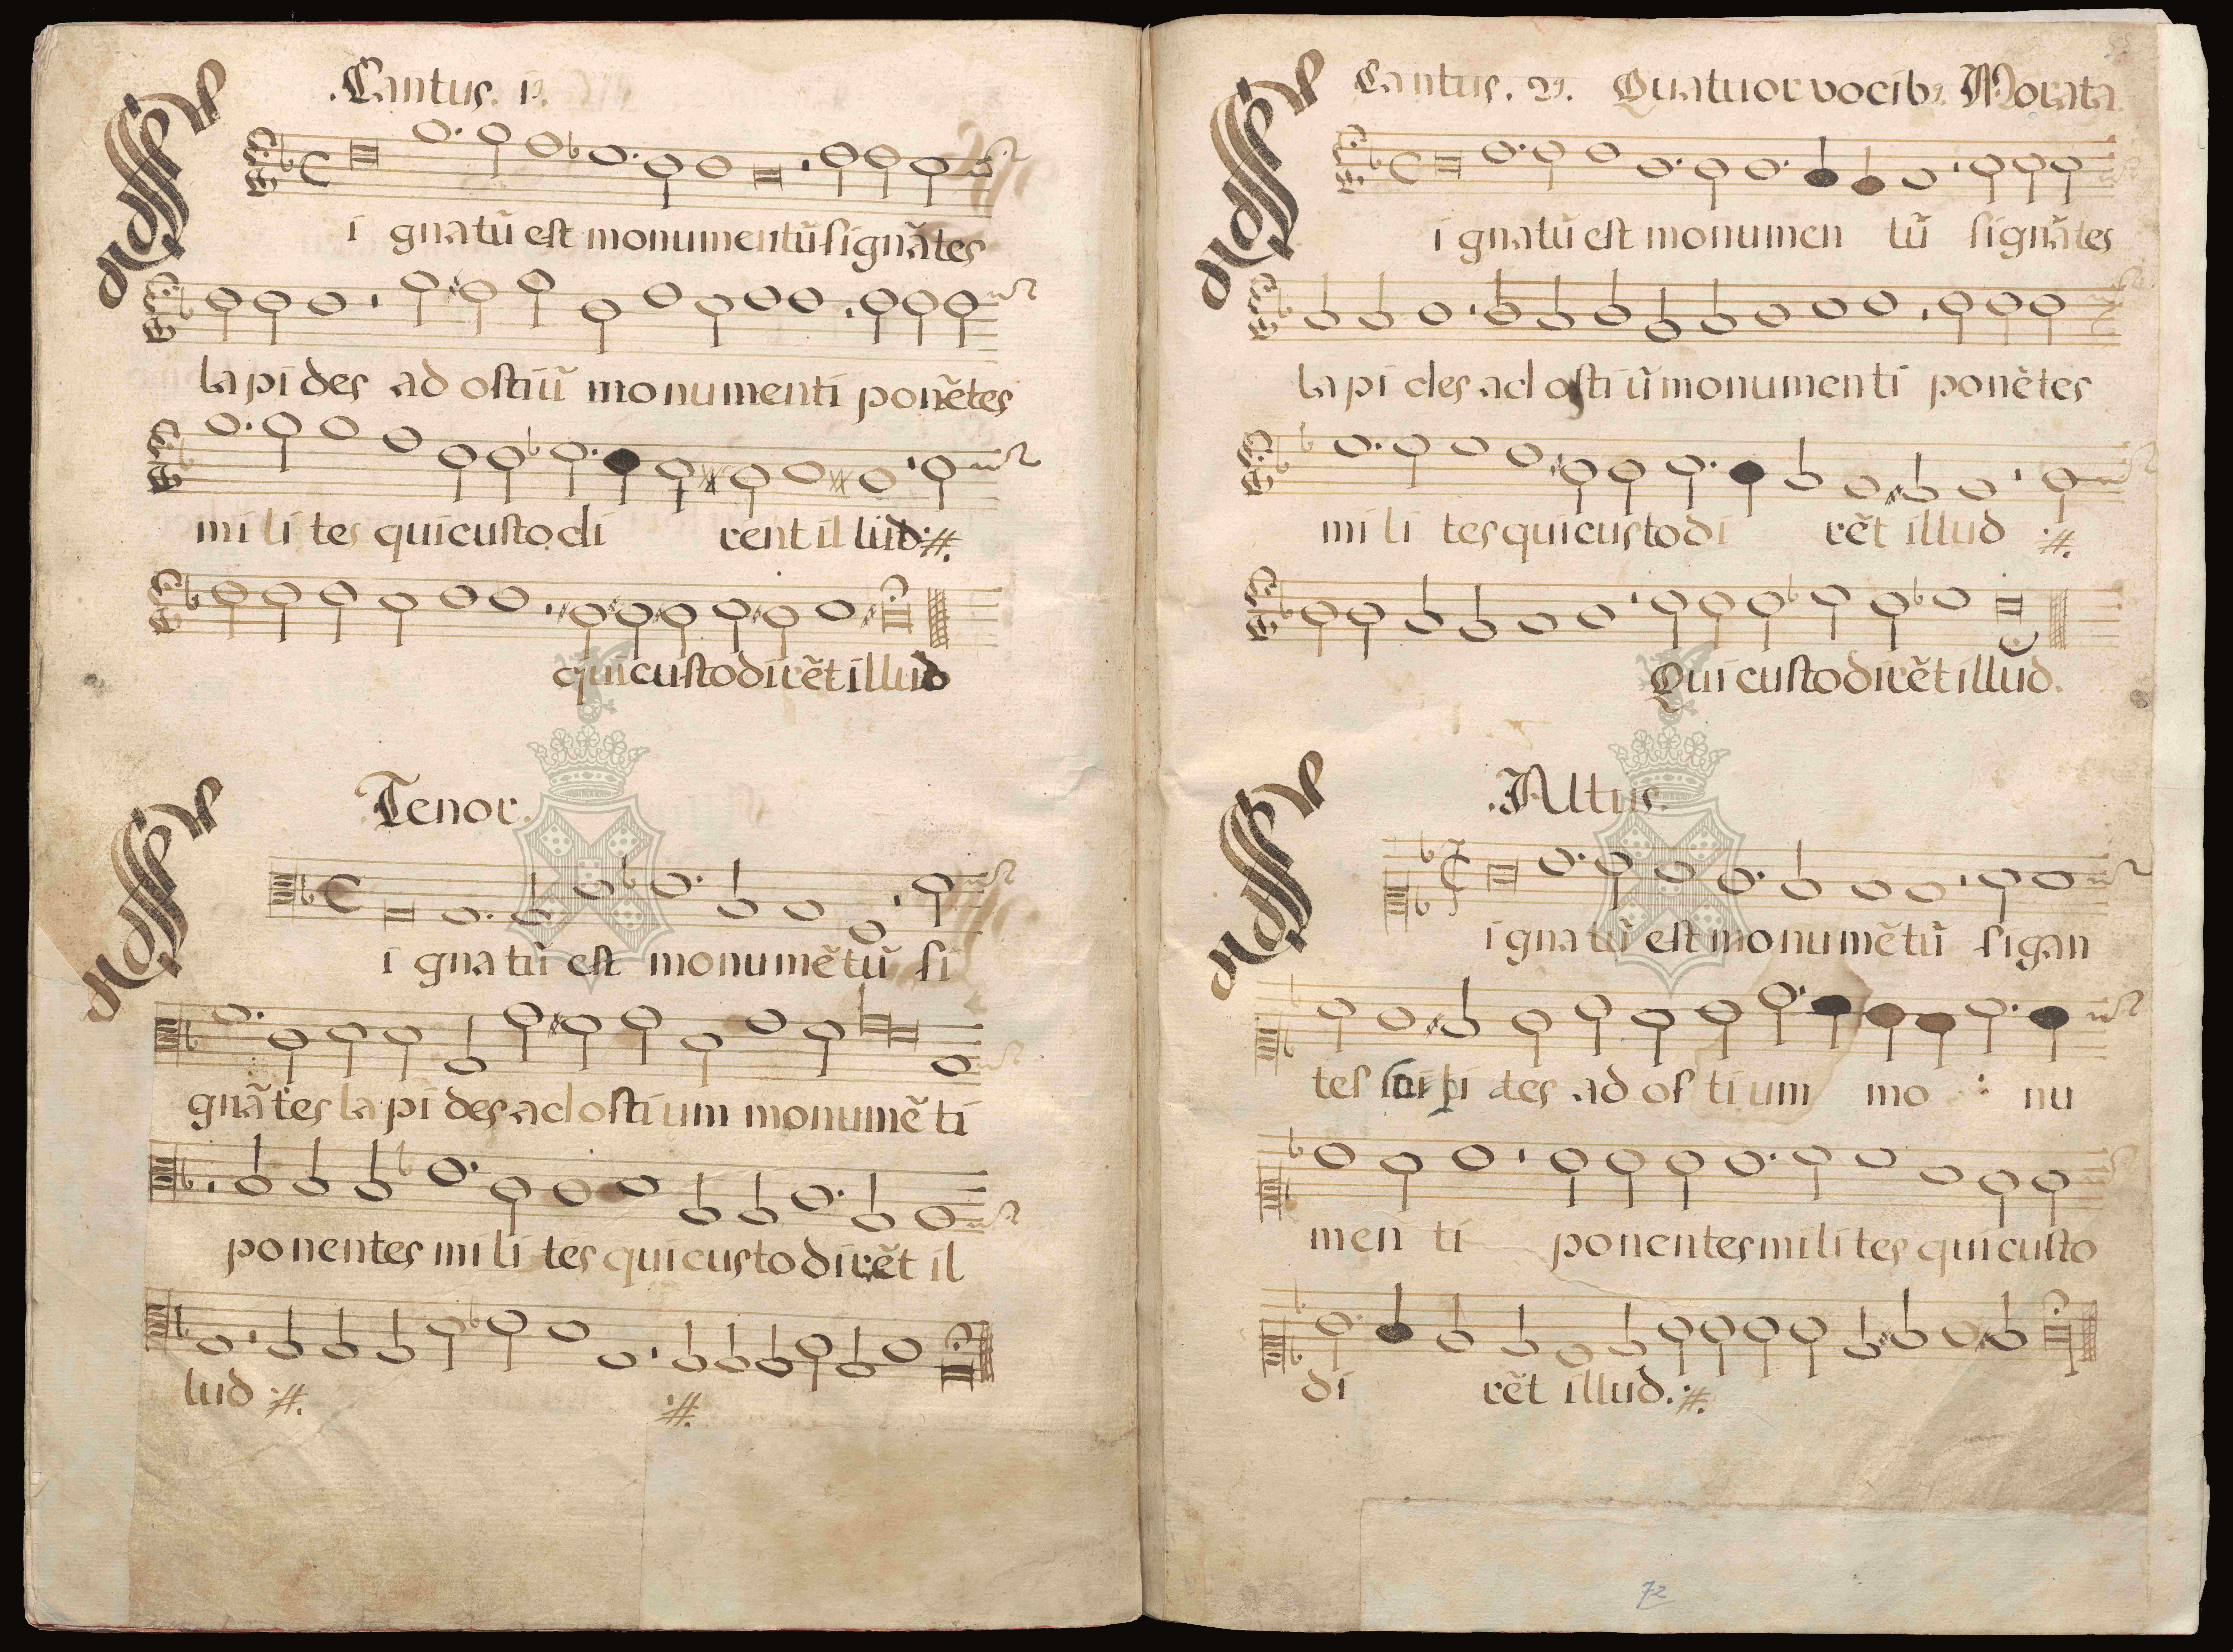 .Cantus. 1º.
S
i gnatũ est monumentũ signãtes
lapides ad ostiũ monumenti ponẽtes
mi li tes qui custodi rent il lud :#.
qui custodirẽt illud
Tenor.
S
i gnatũ est monumẽtũ si
gnãtes lapides ad ostium monumẽ ti
ponentes mi li tes qui custodirẽt il
lud :#. :#.
Cantus. 2º. Quatuor vocibȝ Morata
S
i gnatũ est monumen tũ signãtes
lapi des ad osti ũ monumenti ponẽtes
mi li tes qui custodi rẽt illud :#.
Qui custodirẽt illud.
.Altus.
S
i gna tũ est monumẽtũ sigan
tes des ad os ti um mo nu
men ti ponentes mili tes qui custo
di rẽt illud. :#.
72